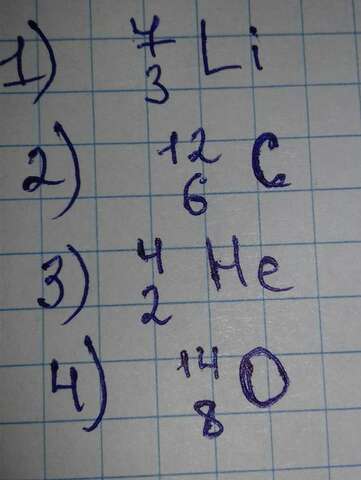 1) ⁷₃ Li
2) ¹²₆ C
3) ⁴₂ He
4) ¹⁴₈ O